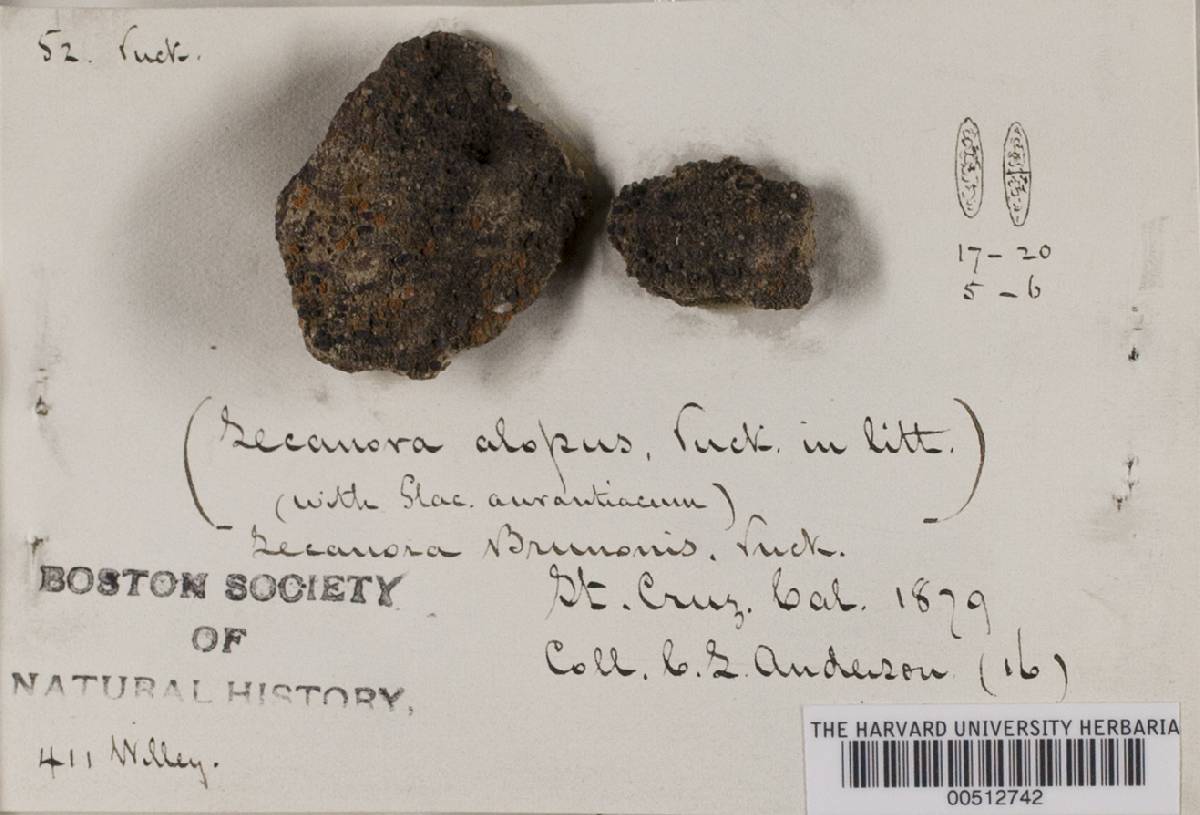 52. Tuck.
17 - 20
5 - 6
(Lecanora alopus, Tuck. in litt.)
(with Plac. aurantiacum)
Lecanora Brunonis. Tuck.
BOSTON SOCIETY
OF
NATURAL HISTORY,
St. Cruz. Cal. 1879
Coll. C. L. Anderson (16)
411 Willey.
THE HARVARD UNIVERSITY HERBARIA
00512742